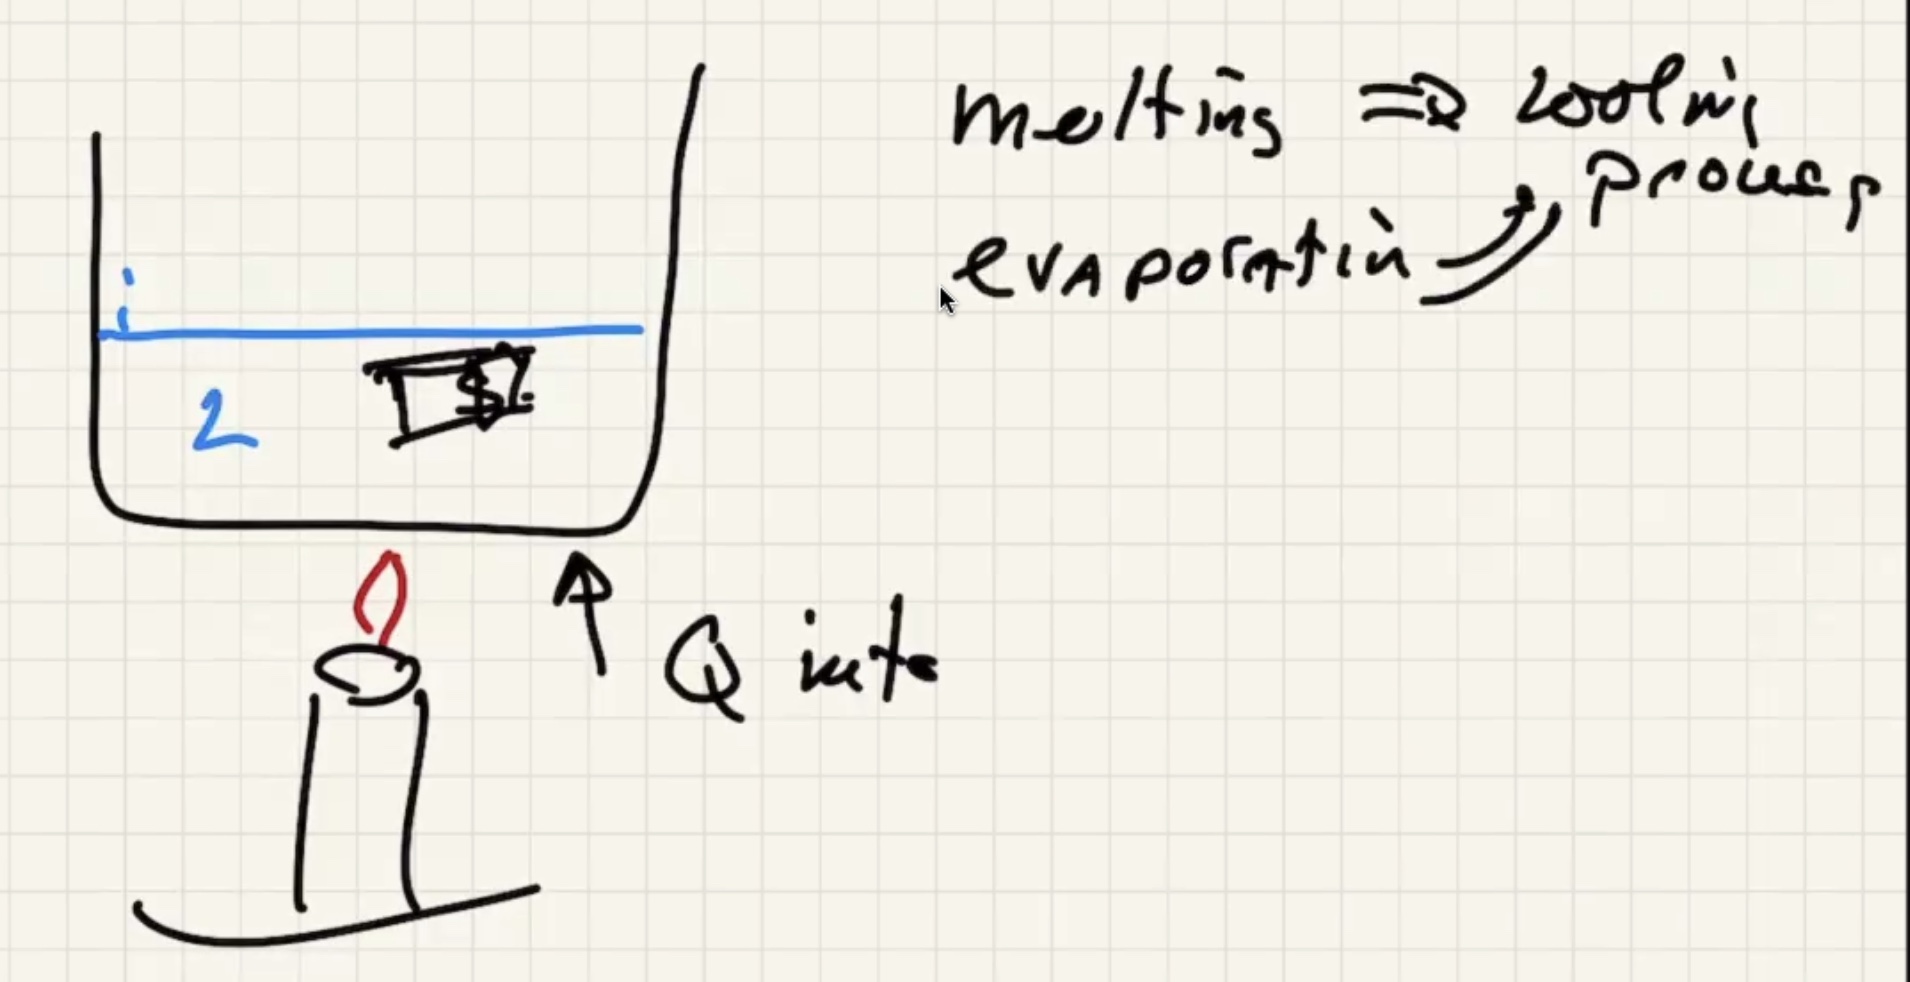 melting ⇒ cooling
process
evaporatin
2
$
Q into